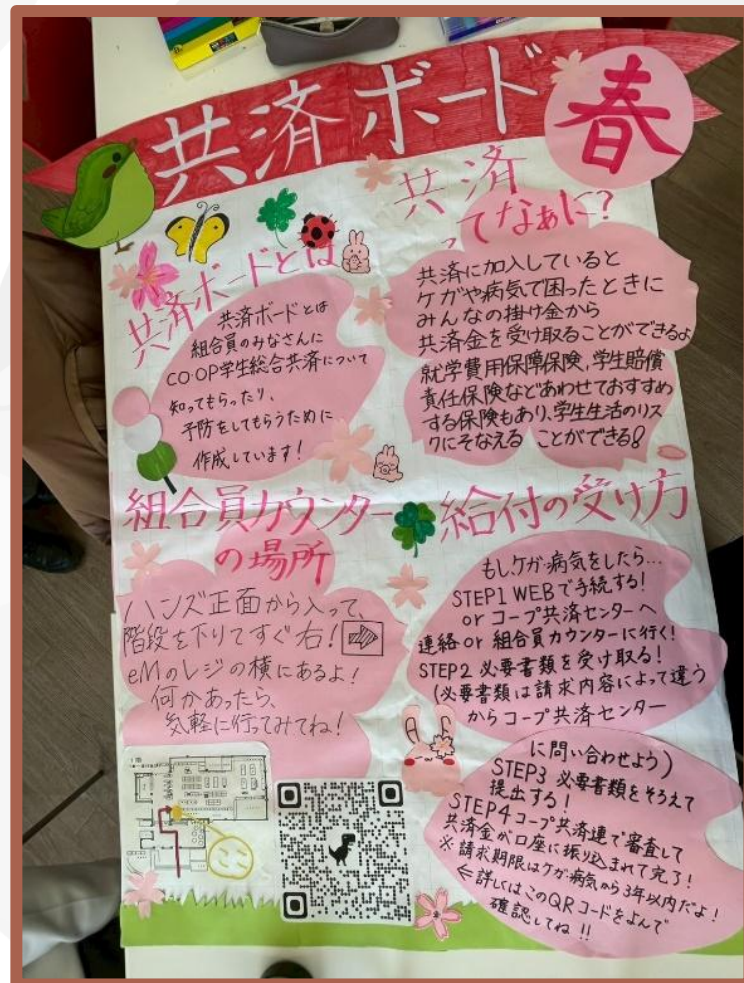 共済ボード
春
共済ボードとは
共済ボードとは
組合員のみなさんに
CO·OP学生総合共済について
知ってもらったり、
予防をしてもらうために
作成しています!
共済
ってなぁに?
共済に加入していると
ケガや病気で困ったときに
みんなの掛け金から
共済金を受け取ることができるよ
就学費用保障保険,学生賠償
責任保険などあわせておすすめ
する保険もあり、学生生活のリス
クにそなえる ことができる!
組合員カウンター
の場所
ハンズ正面から入って、
階段を下りてすぐ右!
eMのレジの横にあるよ!
何かあったら、
気軽に行ってみてね!
ここ
給付の受け方
もしケガ·病気をしたら…
STEP1 WEBで手続する!
or コープ共済センターへ
連絡 or 組合員カウンターに行く!
STEP2 必要書類を受け取る!
(必要書類は請求内容によって違う
からコープ共済センター
に問い合わせよう)
STEP3 必要書類をそろえて
提出する!
STEP4 コープ共済連で審査して
共済金が口座に振り込まれて完了!
※請求期限はケガ·病気から3年以内だよ!
⇐詳しくはこのQRコードをよんで
確認してね!!